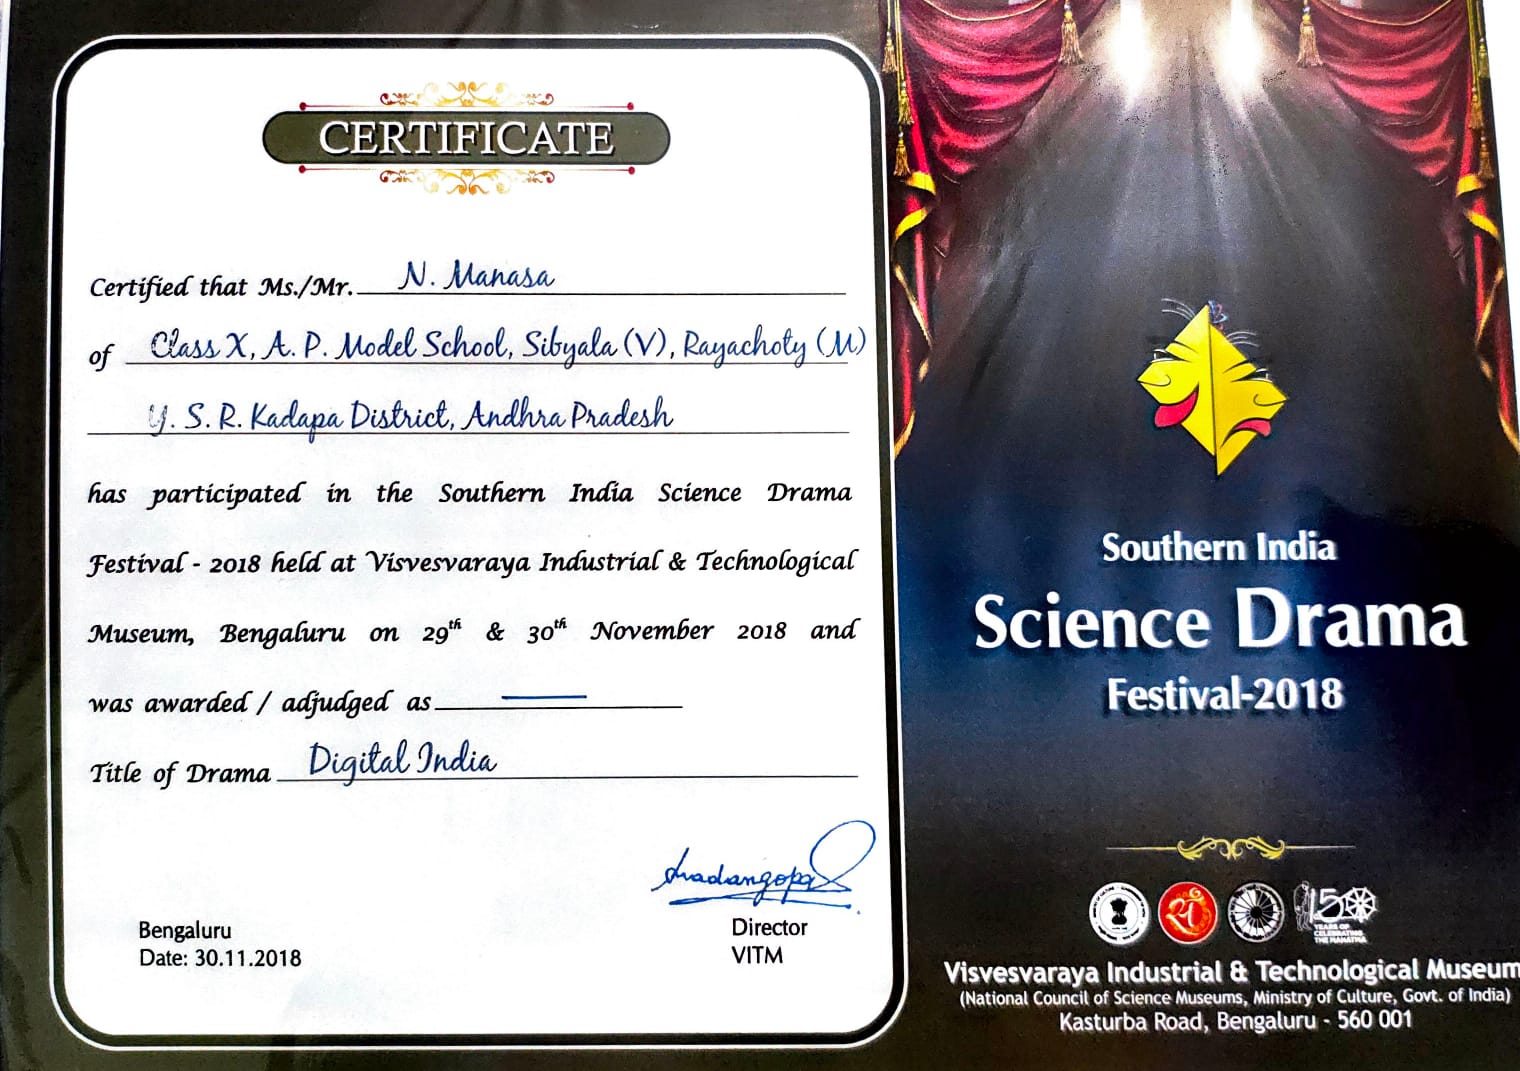 CERTIFICATE
Certified that Ms./Mr. N. Manasa
of Class X, A. P. Model School, Sibyala (V), Rayachoty (M)
Y. S. R. Kadapa District, Andhra Pradesh
has participated in the Southern India Science Drama
Festival - 2018 held at Visvesvaraya Industrial & Technological
Museum, Bengaluru on 29th & 30th November 2018 and
was awarded / adjudged as —
Title of Drama Digital India
Madangopal
Bengaluru
Date: 30.11.2018
Director
VITM
Southern India
Science Drama
Festival-2018
150
YEARS OF
CELEBRATING
THE MAHATMA
Visvesvaraya Industrial & Technological Museum
(National Council of Science Museums, Ministry of Culture, Govt. of India)
Kasturba Road, Bengaluru - 560 001